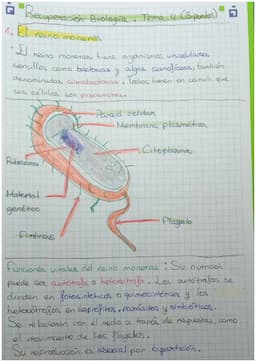 Recuperación Biología. Tema 4 (5 puntos)
1. El reino moneras
- El reino moneras tiene organismos unicelulares
sencillos como bacterias y algas cianofíceas, también
denominadas cianobacterias. Todos tienen en común que
sus células son procariotas.
Pared celular
Membrana plasmática
Citoplasma
Ribosomas
Material
genético
Fimbrias
Flagelo
Funciones vitales del reino moneras: Su nutrición
puede ser autótrofa o heterótrofa. Los autótrofos se
dividen en fotosintéticos o quimiosintéticos y los
heterótrofos en saprófitos, parásitos y simbióticos.
Se relacionan con el medio a través de respuestas, como
el movimiento de los flagelos.
Su reproducción es asexual por bipartición.